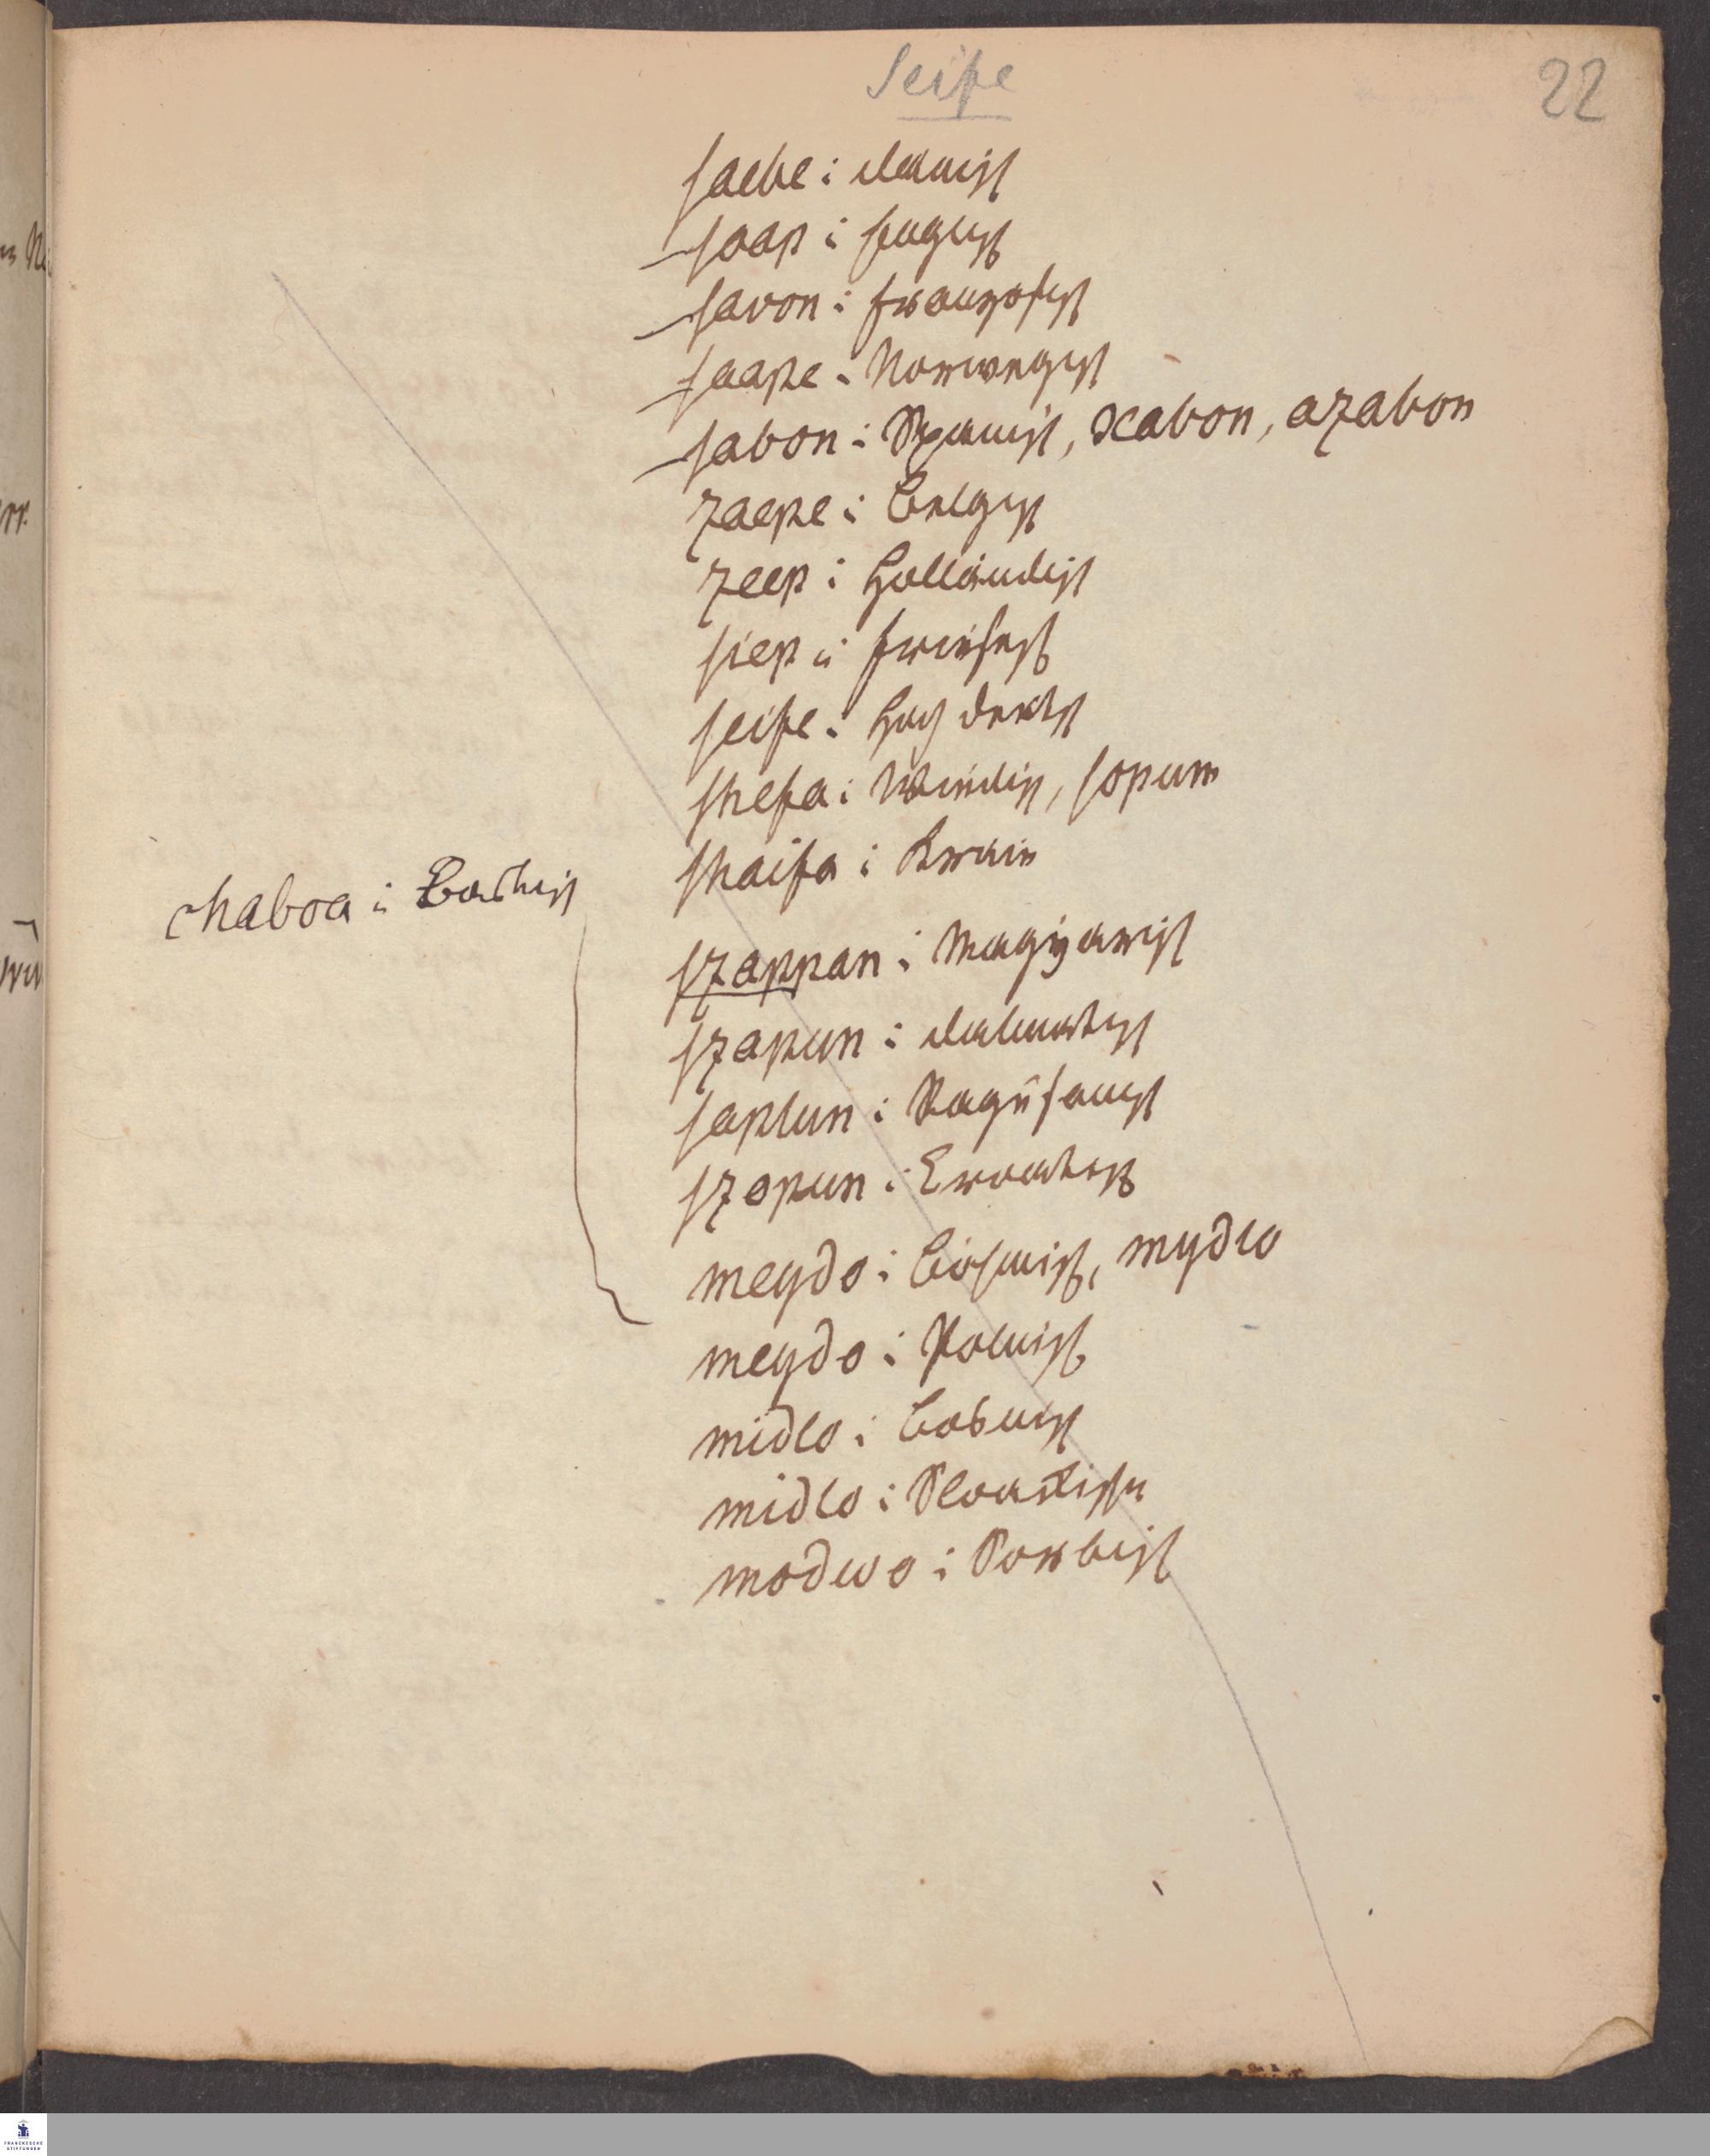 Seife
22
saebe : danisch
soap : Englisch
savon : französisch
saape : Norwegisch
sabon : Spanisch, xabon, azabon
zaepe : belgisch
zeep : Holländisch
siep : friesisch
seife : Hochdeutsch
shefa : Windisch, sopum
shaifa : Krain
chaboa : Baskisch
szappan : Magÿarisch
szapun : dalmatisch
saplun : Ragusanisch
szopun : Croatisch
meydo : böhmisch, mydlo
meydo : Polnisch
midlo : bosnisch
midlo : Slovakisch
modwo : Sorbisch
FRANCKESCHE
STIFTUNGEN